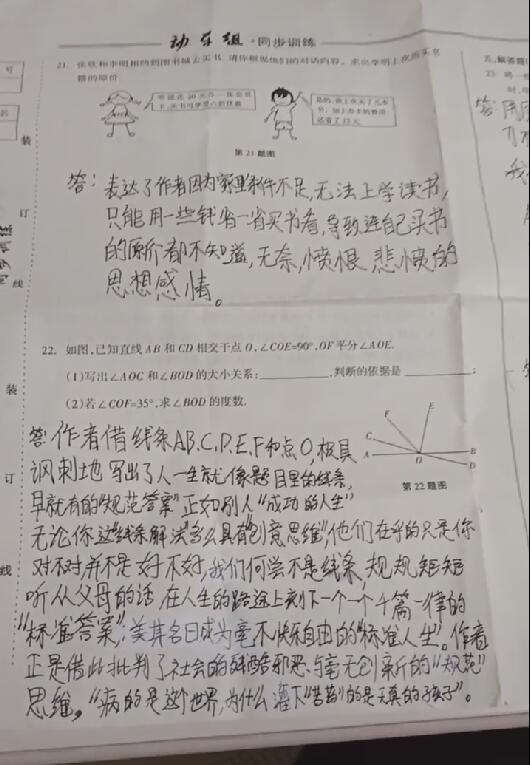 动车组·同步训练
21. 张欣和李明相约到图书城去买书. 请你根据他们的对话内容, 求出李明上次所买书
籍的原价.
听说花20元办一张会员
卡, 买书可享受八折优惠.
是的, 我上次买了几本
书, 加上办卡的费用
还省了12元.
第21题图
答: 表达了作者因为家里条件不足,无法上学读书,
只能用一些钱省一省买书看,导致连自己买书
的原价都不知道,无奈,愤恨,悲愤的
思想感情。
22. 如图,已知直线AB和CD相交于点O,∠COE=90°,OF平分∠AOE.
(1)写出∠AOC和∠BOD的大小关系: ,判断的依据是 ;
(2)若∠COF=35°,求∠BOD的度数.
F E
C
A O B
D
第22题图
答:作者借线条AB.C.D.E.F和点O,极具
讽刺地写出了人一生就像题目里的线条,
早就有的“规范答案”正如别人“成功的人生”
无论你这线条解法多么具有“创意思维”,他们在乎的只是你
对不对,并不是好不好,我们何尝不是线条,规规矩矩
听从父母的话,在人生的路途上刻下一个一个千篇一律的
“标准答案”,美其名曰成为毫不快乐自由的“标准人生”。作者
正是借此批判了社会的邪恶与毫无创新的“规范”
思维。“病的是这个世界,为什么灌下“苦药”的是天真的孩子”。
五、解答题
23.
答:
装
订
线
装
订
线
号
名